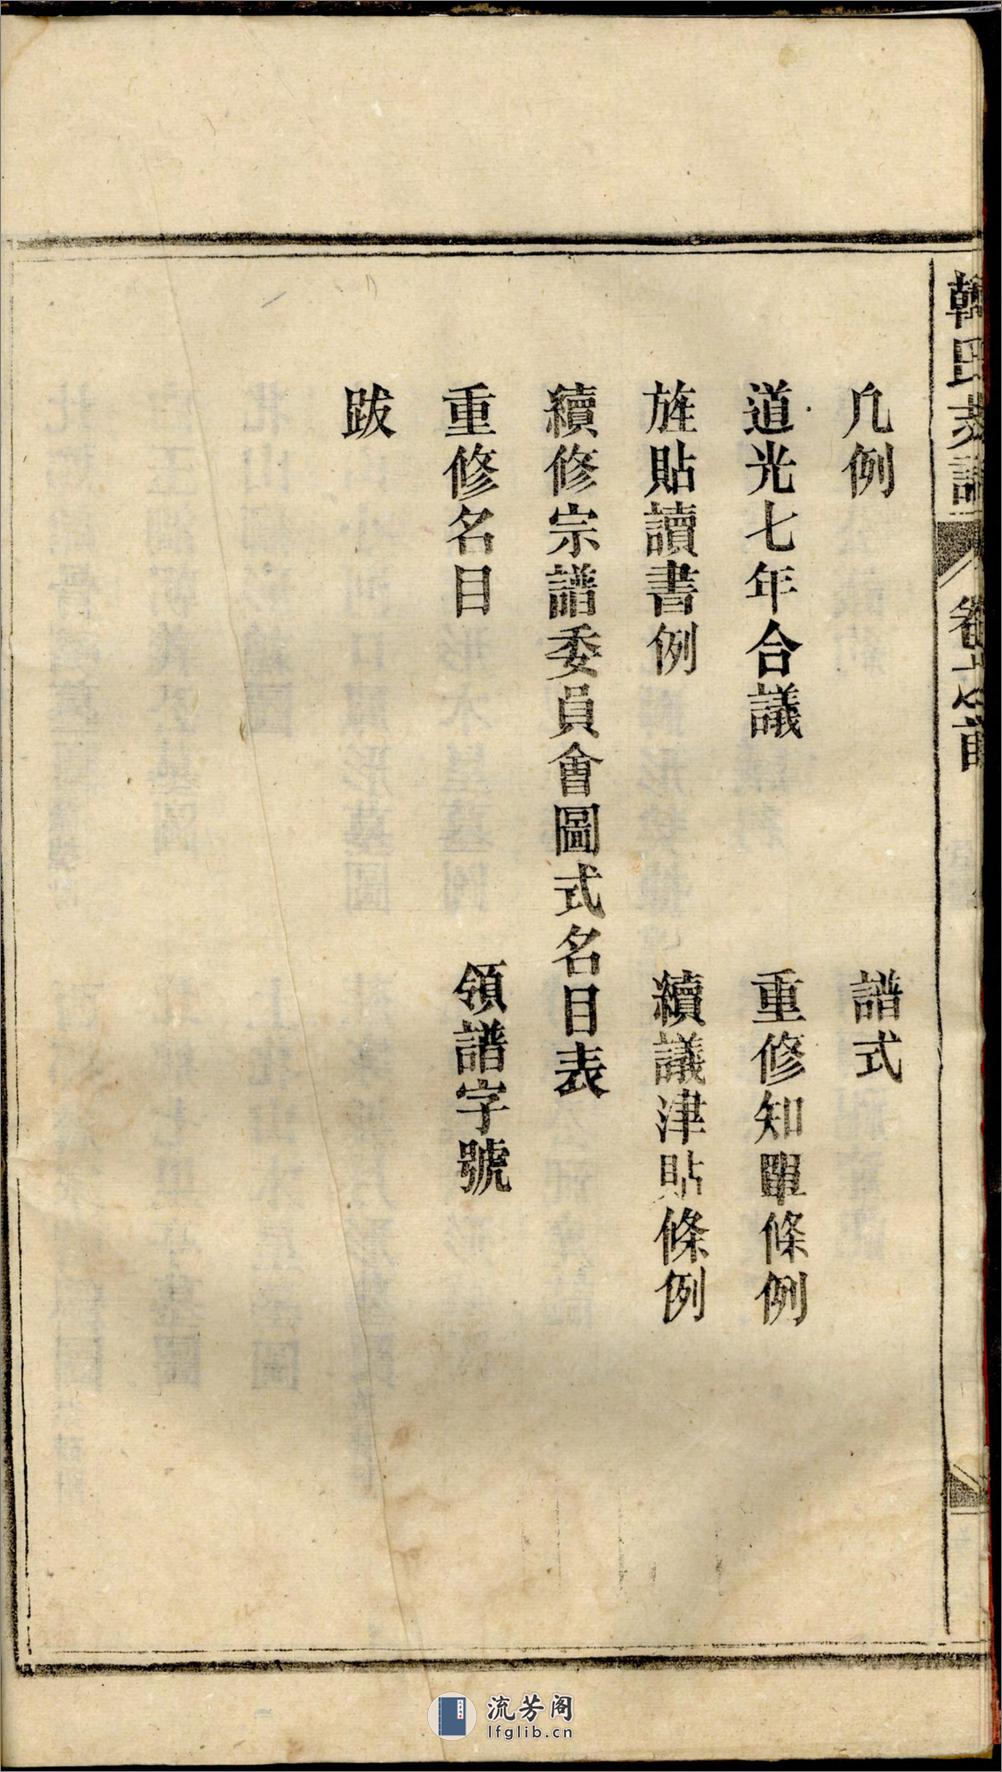 韓氏宗譜
卷之首
凡例
譜式
道光七年合議
重修知單條例
旌貼讀書例
續議津貼條例
續修宗譜委員會圖式名目表
重修名目
領譜字號
跋
流芳阁
lfglib.cn